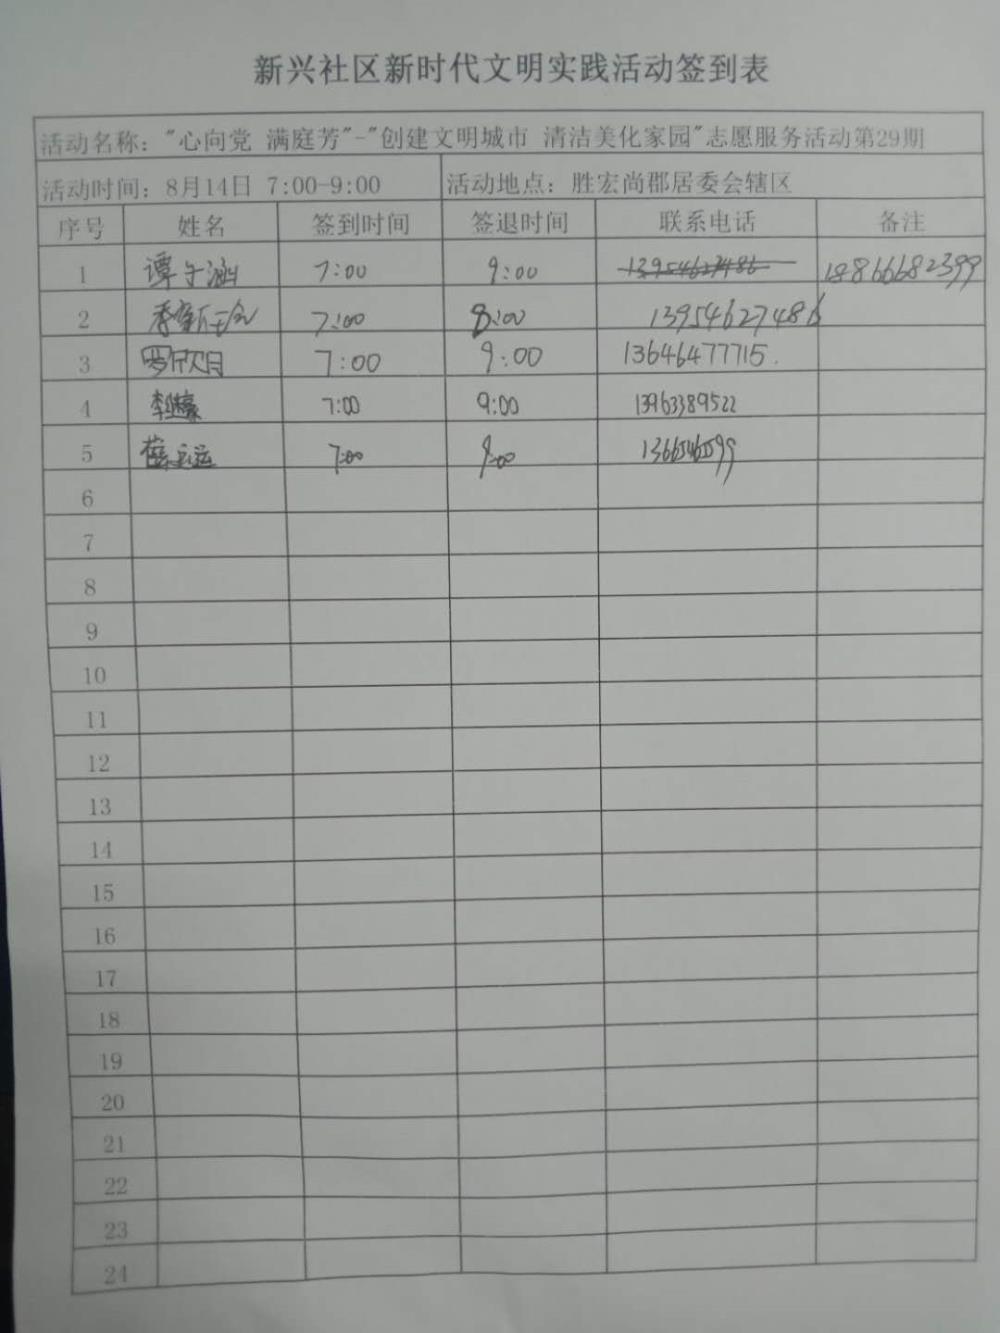 新兴社区新时代文明实践活动签到表
活动名称："心向党 满庭芳"-"创建文明城市 清洁美化家园"志愿服务活动第29期
活动时间：8月14日 7:00-9:00 活动地点：胜宏尚郡居委会辖区
序号 姓名 签到时间 签退时间 联系电话 备注
1 谭子涵 7:00 9:00 13954627486 18866682399
2 7:00 8:00 13954627486
3 罗欣月 7:00 9:00 13646477715.
4 7:00 9:00 13963389522
5 7:00 9:00
6
7
8
9
10
11
12
13
14
15
16
17
18
19
20
21
22
23
24